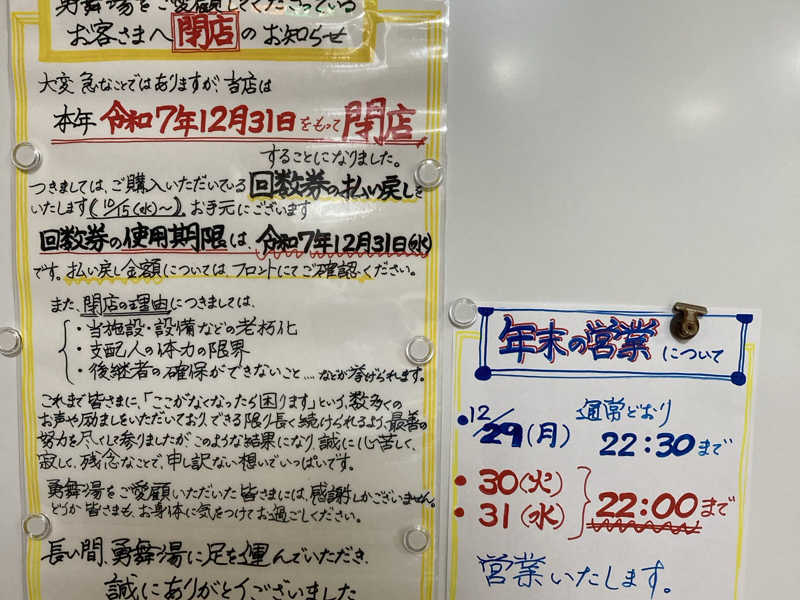 勇舞湯をご愛顧してくださっている
お客さまへ閉店のお知らせ
大変 急なことではありますが、当店は
本年 令和7年12月31日をもって閉店
することになりました。
つきましては、ご購入いただいている回数券の払い戻しを
いたします(10/15(水)〜)。お手元にございます
回数券の使用期限は、令和7年12月31日(水)
です。払い戻し金額については、フロントにてご確認ください。
また、閉店の理由につきましては、
・当施設・設備などの老朽化
・支配人の体力の限界
・後継者の確保ができないこと…などが挙げられます。
これまで皆さまに、「ここがなくなったら困ります」という、数多くの
お声や励ましをいただいており、できる限り長く続けられるよう、最善の
努力を尽くして参りましたが、このような結果になり、誠に心苦しく、
寂しく、残念なことで、申し訳ない想いでいっぱいです。
勇舞湯をご愛顧いただいた皆さまには、感謝しかございません。
どうか皆さまも、お身体に気をつけてお過ごしください。
長い間、勇舞湯に足を運んでいただき、
誠にありがとうございました
年末の営業について
・12/29(月) 通常どおり 22:30まで
・30(火)
・31(水) 22:00まで
営業いたします。